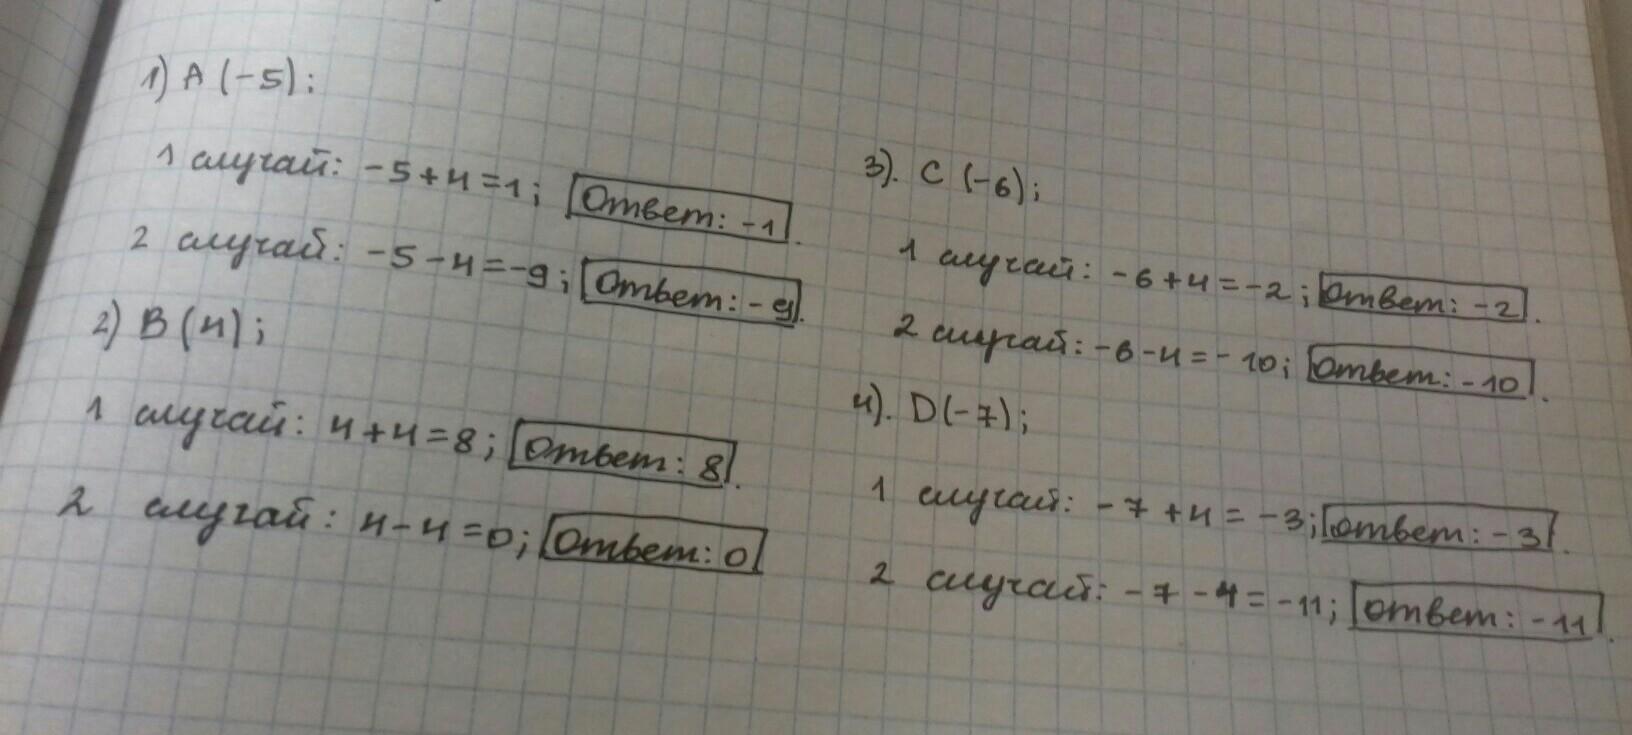 1) A (-5);
1 случай: -5+4=1; Ответ: -1.
2 случай: -5-4=-9; Ответ: -9.
2) B (4);
1 случай: 4+4=8; Ответ: 8.
2 случай: 4-4=0; Ответ: 0
3). C (-6);
1 случай: -6+4=-2; Ответ: -2.
2 случай: -6-4=-10; Ответ: -10.
4). D(-7);
1 случай: -7+4=-3; Ответ: -3.
2 случай: -7-4=-11; Ответ: -11.